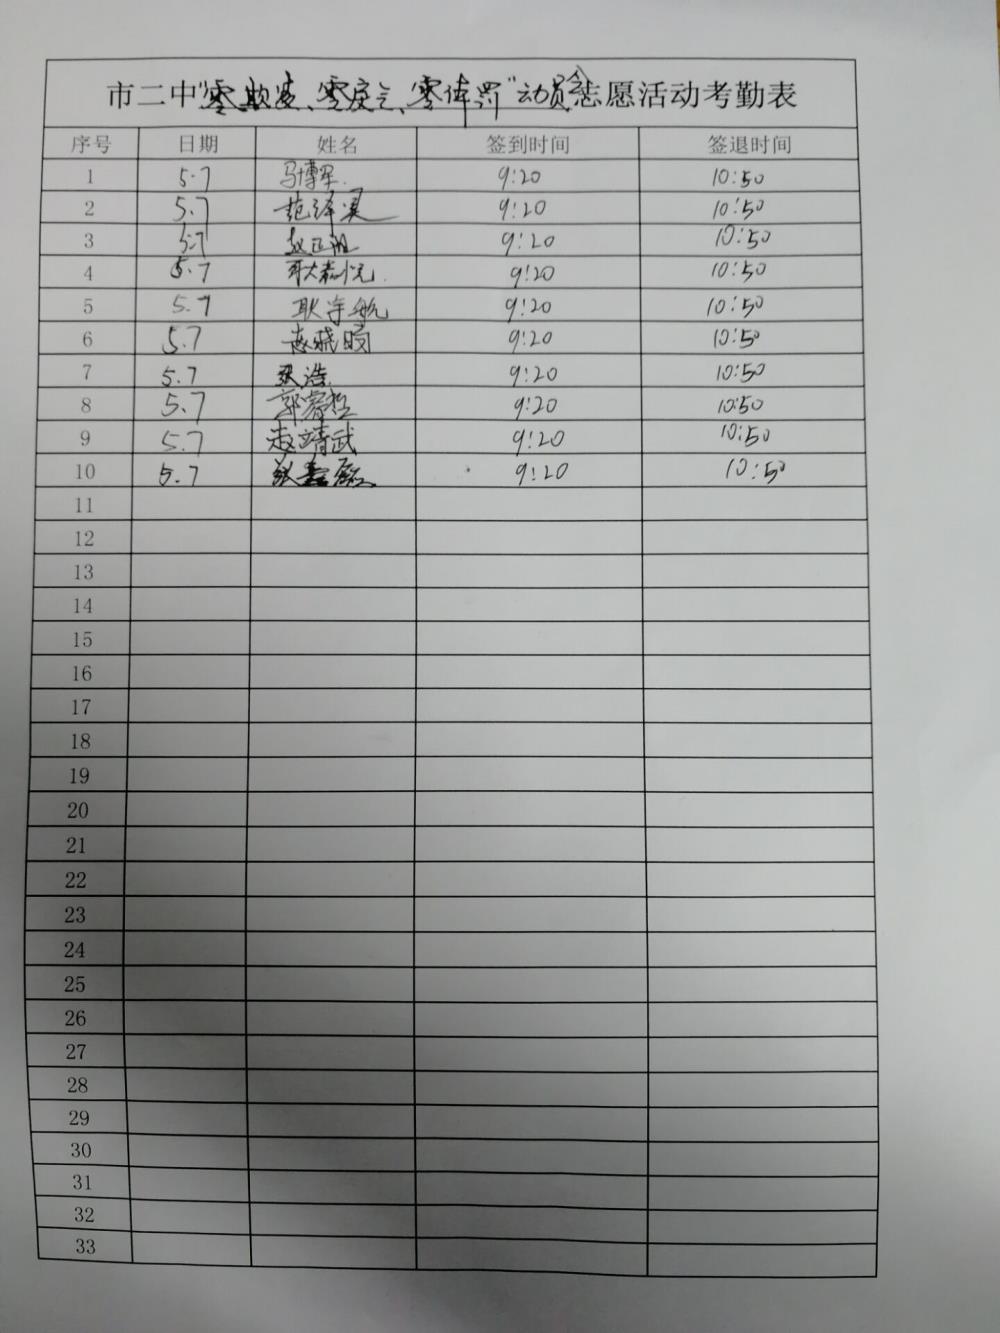 市二中“零欺凌、零戾气、零体罚”动员会志愿活动考勤表
序号 日期 姓名 签到时间 签退时间
1 5.7 马博军. 9:20 10:50
2 5.7 范泽灏 9:20 10:50
3 5.7 赵 9:20 10:50
4 5.7 9:20 10:50
5 5.7 耿宇航 9:20 10:50
6 5.7 赵晓 9:20 10:50
7 5.7 张浩 9:20 10:50
8 5.7 郭睿哲 9:20 10:50
9 5.7 赵靖武 9:20 10:50
10 5.7 张鑫磊 9:20 10:50
11
12
13
14
15
16
17
18
19
20
21
22
23
24
25
26
27
28
29
30
31
32
33